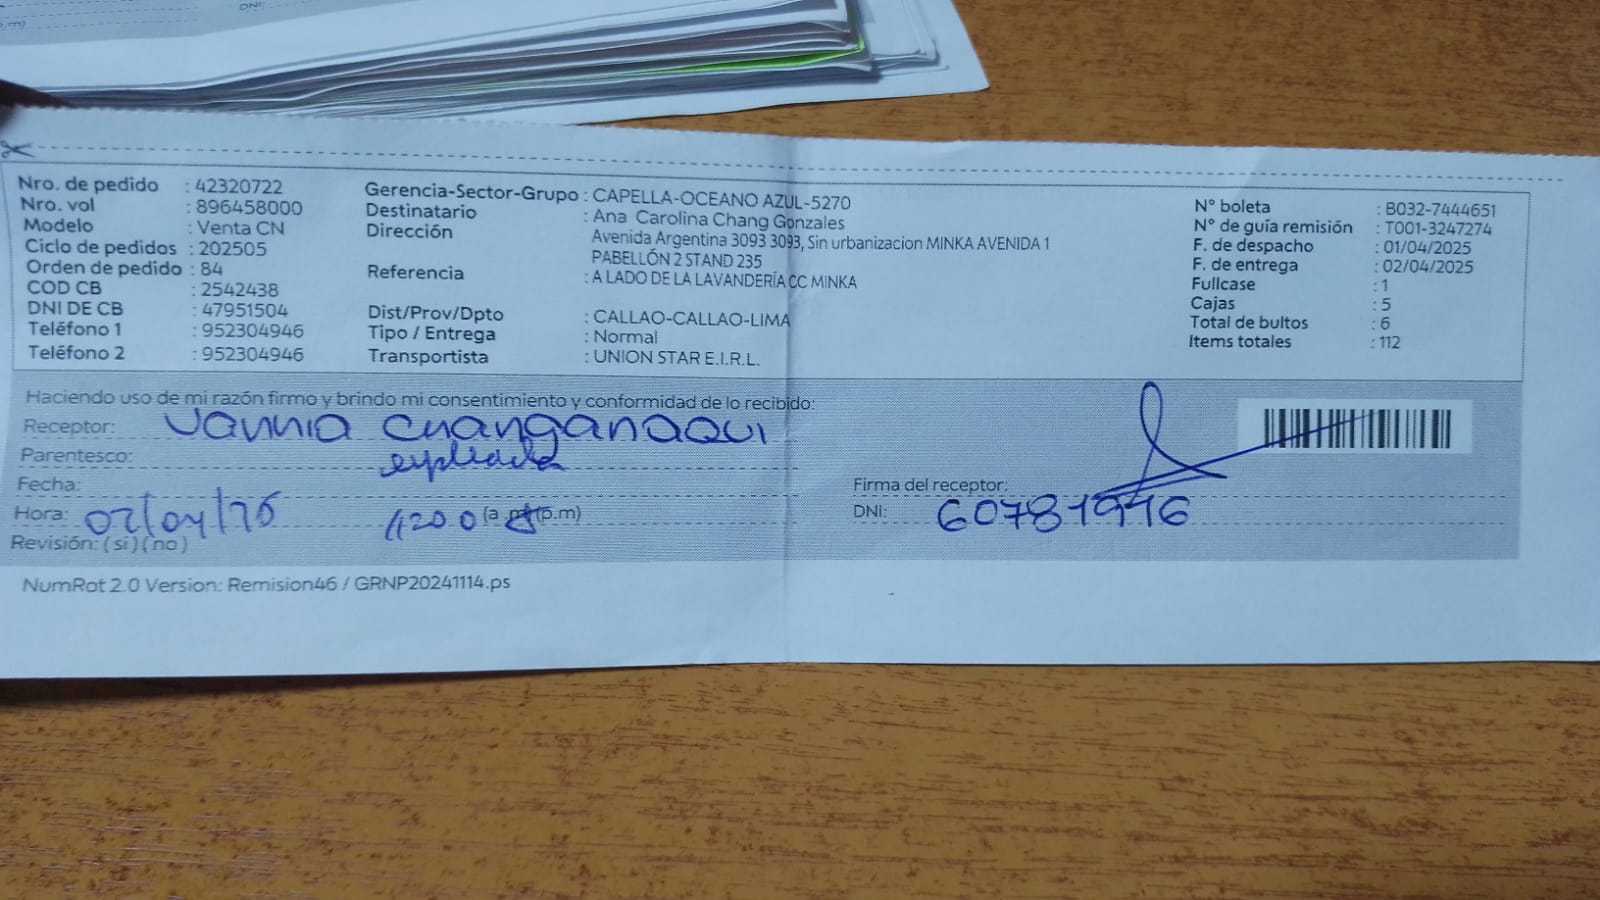 .m)
DNI:
Nro. de pedido : 42320722
Nro. vol : 896458000
Modelo : Venta CN
Ciclo de pedidos : 202505
Orden de pedido : 84
COD CB : 2542438
DNI DE CB : 47951504
Teléfono 1 : 952304946
Teléfono 2 : 952304946
Gerencia-Sector-Grupo : CAPELLA-OCEANO AZUL-5270
Destinatario : Ana Carolina Chang Gonzales
Dirección Avenida Argentina 3093 3093, Sin urbanizacion MINKA AVENIDA 1
PABELLÓN 2 STAND 235
Referencia : A LADO DE LA LAVANDERÍA CC MINKA
Dist/Prov/Dpto : CALLAO-CALLAO-LIMA
Tipo / Entrega : Normal
Transportista : UNION STAR E.I.R.L.
N° boleta : B032-7444651
N° de guía remisión : T001-3247274
F. de despacho : 01/04/2025
F. de entrega : 02/04/2025
Fullcase : 1
Cajas : 5
Total de bultos : 6
Items totales : 112
Haciendo uso de mi razón firmo y brindo mi consentimiento y conformidad de lo recibido:
Receptor: Vannia Changanaqui
Parentesco:
Fecha:
Hora: (p.m)
Revisión: (si) (no)
Firma del receptor:
DNI: 60781946
NumRot 2.0 Version: Remision46 / GRNP20241114.ps